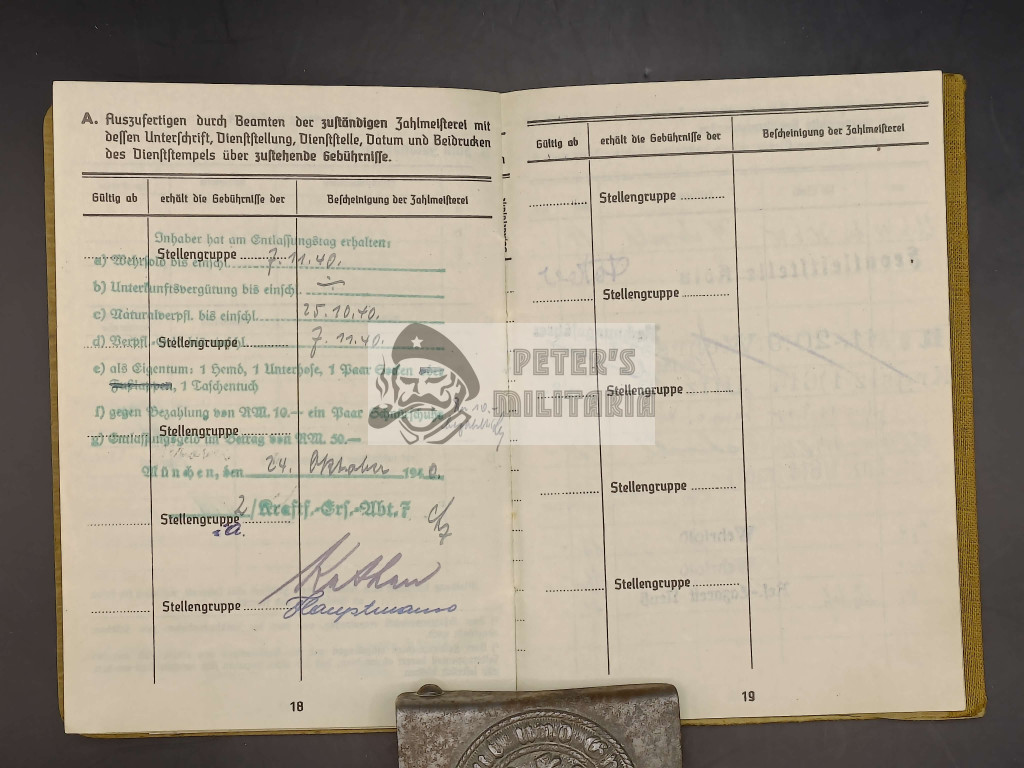 A. Auszufertigen durch Beamten der zuständigen Zahlmeisterei mit
dessen Unterschrift, Dienststellung, Dienststelle, Datum und Beidrucken
des Dienststempels über zustehende Gebührnisse.
Gültig ab erhält die Gebührnisse der Bescheinigung der Zahlmeisterei
Inhaber hat am Entlassungstag erhalten:
Stellengruppe
a) Wehrsold bis einschl. 7.11.40.
b) Unterkunftsvergütung bis einschl.
c) Naturalverpfl. bis einschl. 25.10.40.
Stellengruppe
d) Verpfl. 7.11.40.
e) als Eigentum: 1 Hemd, 1 Unterhose, 1 Paar Socken oder
Fußlappen, 1 Taschentuch
f) gegen Bezahlung von RM. 10.— ein Paar Schnürschuhe
Stellengruppe
g) Entlassungsgeld im Betrag von RM. 50.—
München, den 24. Oktober 1940.
2/Kraftf.-Ers.-Abt. 7
Stellengruppe
Kathan
Stellengruppe
Hauptmann
18
Gültig ab erhält die Gebührnisse der Bescheinigung der Zahlmeisterei
Stellengruppe
Stellengruppe
Stellengruppe
Stellengruppe
Stellengruppe
19
PETER'S
MILITARIA